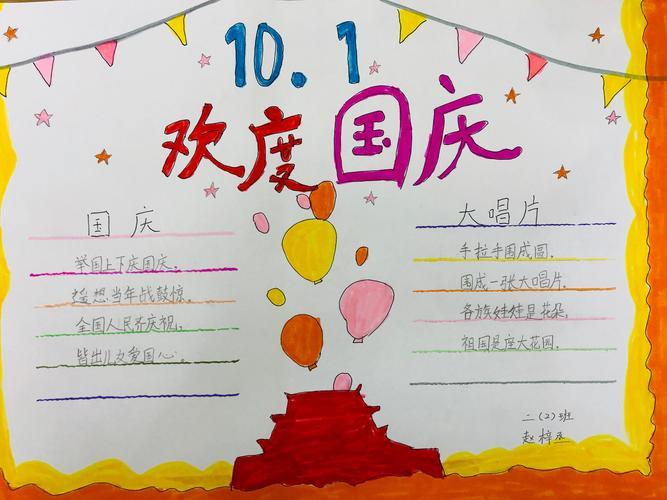 10.1
欢度国庆
国庆
举国上下庆国庆。
遥想当年战鼓惊。
全国人民齐庆祝。
皆出儿女爱国心。
大唱片
手拉手围成圆。
围成一张大唱片。
各族娃娃是花朵。
祖国是座大花园。
二(2)班
赵梓丞